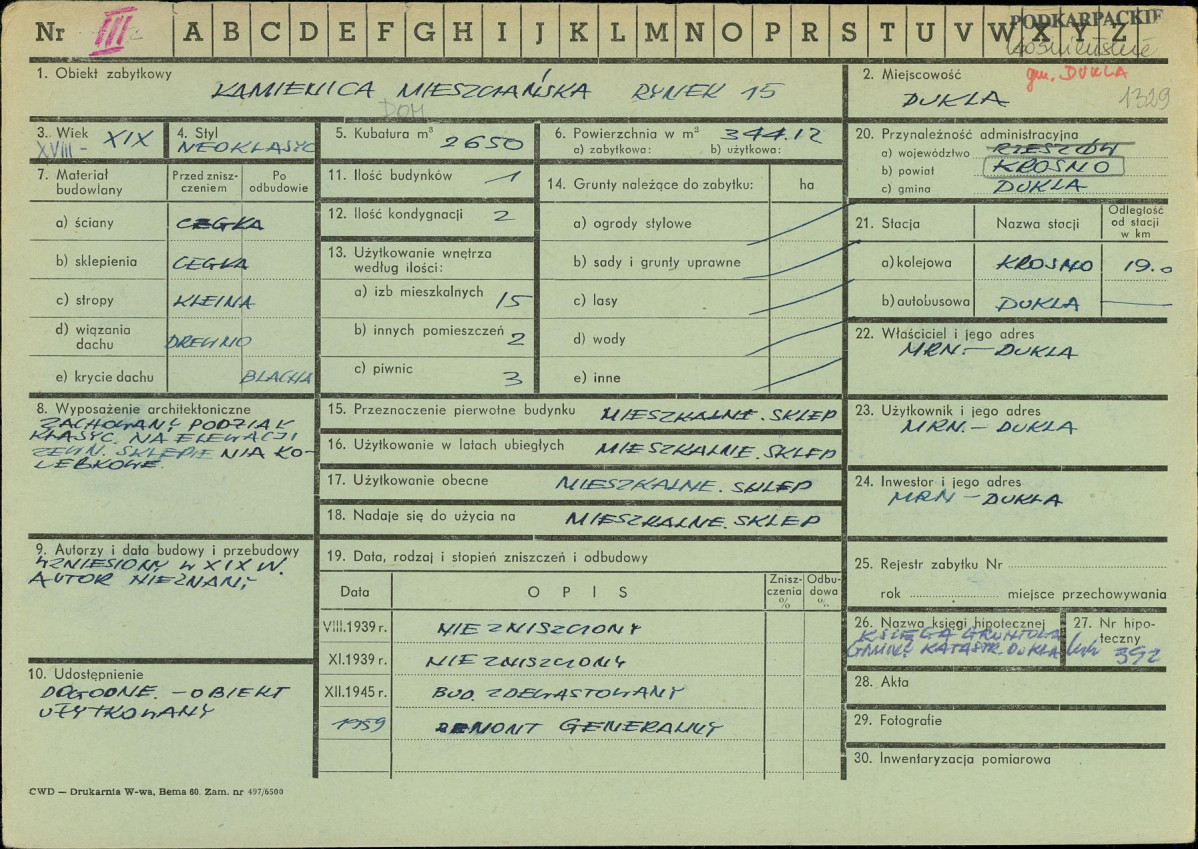 Nr III A B C D E F G H I J K L M N O P R S T U V W X Y Z
PODKARPACKIE
krośnieńskie
gm. DUKLA
1329
1. Obiekt zabytkowy
KAMIENICA MIESZCZAŃSKA RYNEK 15
DOM
2. Miejscowość
DUKLA
3. Wiek
XVIII - XIX
4. Styl
NEOKLASYC
5. Kubatura m³
2650
6. Powierzchnia w m² 344.12
a) zabytkowa: b) użytkowa:
20. Przynależność administracyjna
a) województwo RZESZÓW
b) powiat KROSNO
c) gmina DUKLA
7. Materiał budowlany
Przed zniszczeniem
Po odbudowie
a) ściany CEGŁA
b) sklepienia CEGŁA
c) stropy KLEINA
d) wiązania dachu DREWNO
e) krycie dachu BLACHA
11. Ilość budynków 1
12. Ilość kondygnacji 2
13. Użytkowanie wnętrza
według ilości:
a) izb mieszkalnych 15
b) innych pomieszczeń 2
c) piwnic 3
14. Grunty należące do zabytku: ha
a) ogrody stylowe
b) sady i grunty uprawne
c) lasy
d) wody
e) inne
21. Stacja
Nazwa stacji
Odległość od stacji w km
a) kolejowa KROSNO 19.0
b) autobusowa DUKLA —
22. Właściciel i jego adres
MRN. - DUKLA
8. Wyposażenie architektoniczne
ZACHOWANY PODZIAŁ
KLASYC. NA ELEWACJI
ZEWN. SKLEPIENIA KO-
LEBKOWE.
15. Przeznaczenie pierwotne budynku MIESZKALNE. SKLEP
16. Użytkowanie w latach ubiegłych MIESZKALNE. SKLEP
17. Użytkowanie obecne MIESZKALNE. SKLEP
18. Nadaje się do użycia na MIESZKALNE. SKLEP
23. Użytkownik i jego adres
MRN. - DUKLA
24. Inwestor i jego adres
MRN - DUKLA
9. Autorzy i data budowy i przebudowy
WZNIESIONY W XIX W.
AUTOR NIEZNANY
19. Data, rodzaj i stopień zniszczeń i odbudowy
Data
OPIS
Zniszczenia %
Odbudowa %
VIII.1939 r. NIE ZNISZCZONY
XI.1939 r. NIE ZNISZCZONY
XII.1945 r. BUD. ZDEWASTOWANY
1959 REMONT GENERALNY
25. Rejestr zabytku Nr
rok miejsce przechowywania
26. Nazwa księgi hipotecznej
KSIĘGA GRUNTOWA
GMINY KATASTR. DUKLA
27. Nr hipoteczny
lwh 392
10. Udostępnienie
DOGODNE. - OBIEKT
UŻYTKOWANY
28. Akta
29. Fotografie
30. Inwentaryzacja pomiarowa
CWD — Drukarnia W-wa, Bema 60. Zam. nr 497/6500